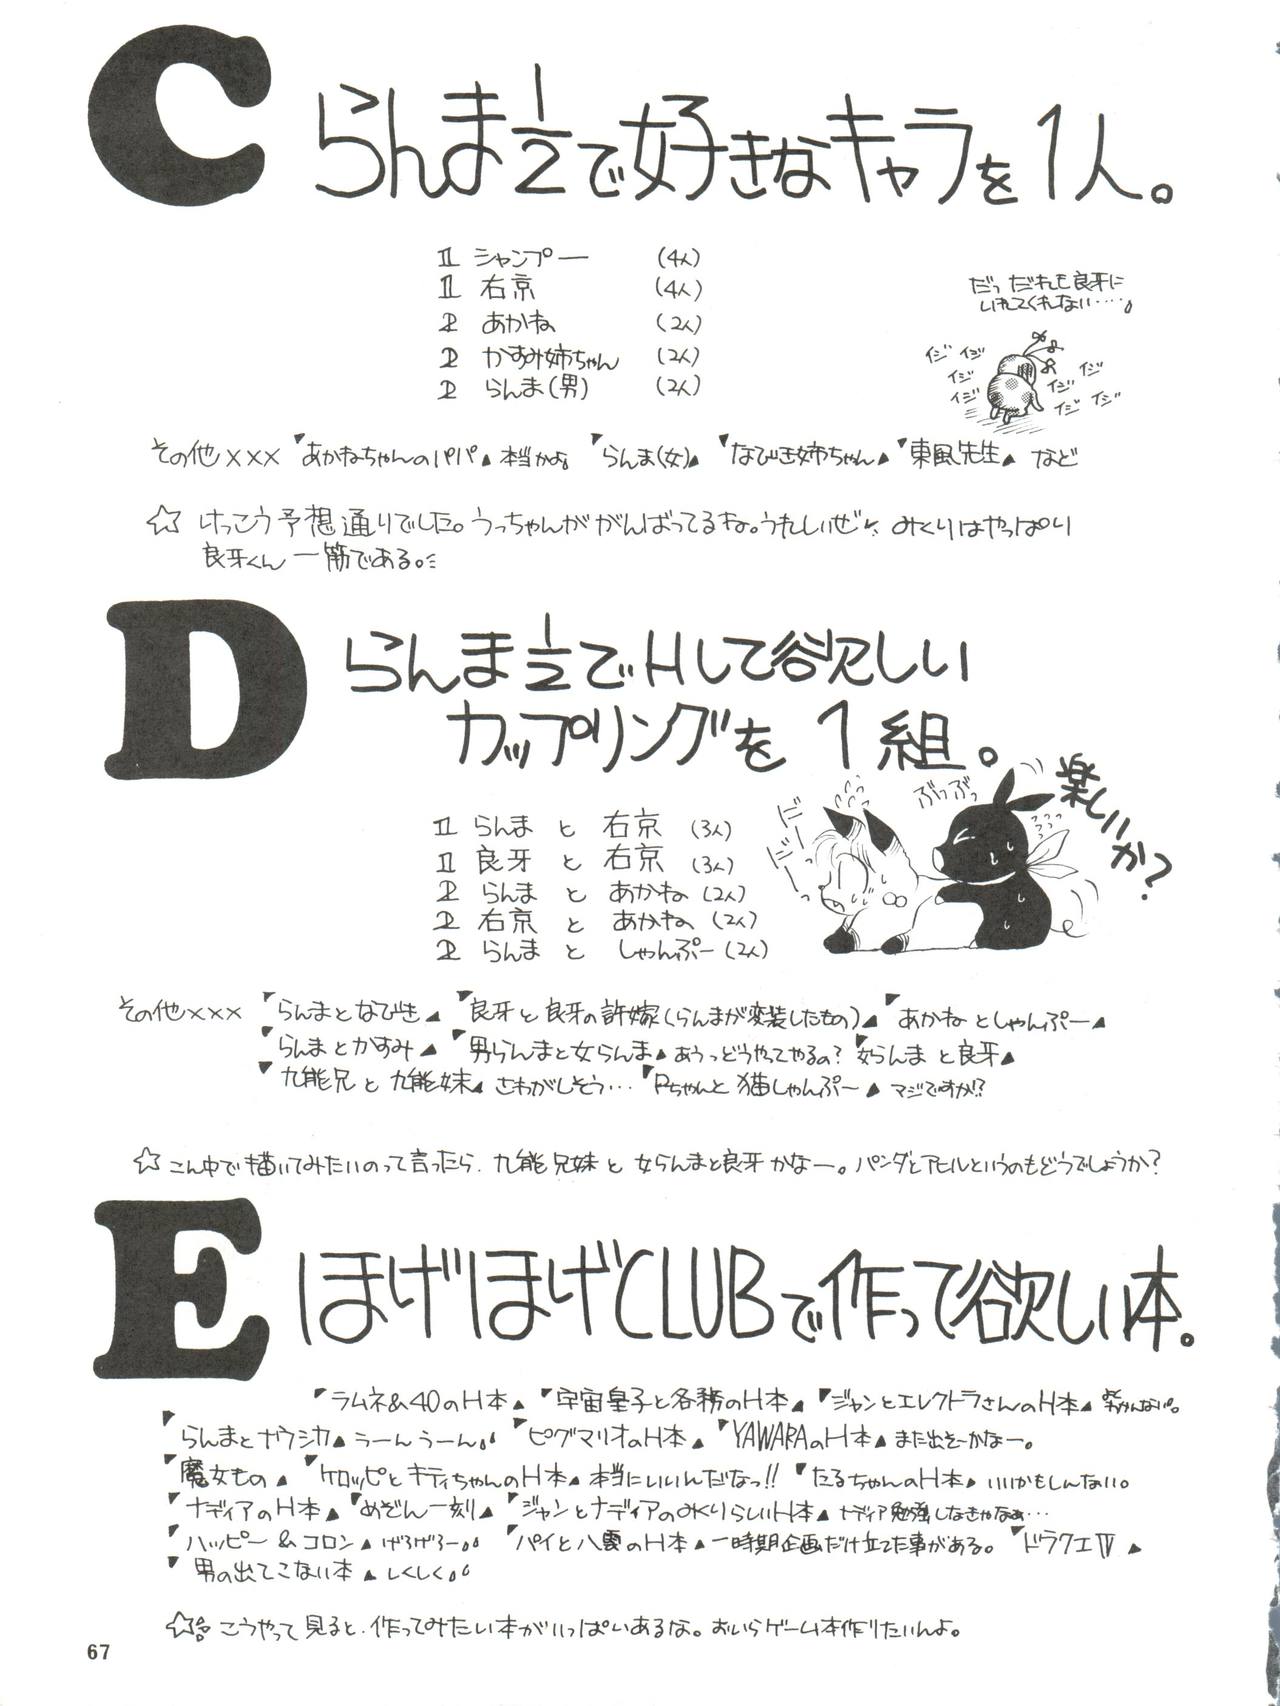 C
らんま1/2で好きなキャラを1人。
1 シャンプー (4人)
1 右京 (4人)
2 あかね (2人)
2 かすみ姉ちゃん (2人)
2 らんま(男) (2人)
だっ だれも良牙に
いれてくれない….
イジ イジ
イジ イジ イジ
イジ イジ イジ
その他××× 「あかねちゃんのパパ」本当かよ 「らんま(女)」 「なびき姉ちゃん」 「東風先生」 など
☆ けっこう予想通りでした。うっちゃんががんばってるね。うれしいぜ みくりはやっぱり
良牙くん一筋である。
D
らんま1/2でHして欲しい
カップリングを1組。
1 らんま と 右京 (3人)
1 良牙 と 右京 (3人)
2 らんま と あかね (2人)
2 右京 と あかね (2人)
2 らんま と しゃんぷー (2人)
ぶっぶっ
楽しいか?
その他××× 「らんまとなびき」 「良牙と良牙の許嫁(らんまが変装したもの)」 「あかねとしゃんぷー」
「らんまとかすみ」 「男らんまと女らんま」あうっどうやってやるの? 「女らんまと良牙」
「九能兄と九能妹」さわがしそう… 「Pちゃんと猫しゃんぷー」 マジですか!?
☆ こん中で描いてみたいのって言ったら、九能兄妹と女らんまと良牙かなー。パンダとアヒルというのもどうでしょうか?
E
ほげほげCLUBで作って欲しい本。
「ラムネ&40のH本」 「宇宙皇子と各務のH本」 「ジャンとエレクトラさんのH本」
「らんまとナウシカ」うーんうーん 「ピグマリオのH本」 「YAWARAのH本」また出そーかなー。
「魔女もの」 「ケロッピとキティちゃんのH本」本当にいいんだなっ!! 「たるちゃんのH本」いいかもしんない。
「ナディアのH本」 「めぞん一刻」 「ジャンとナディアのみくりらしいH本」ナディア勉強しなきゃなぁ…
「ハッピー&コロン」げろげろー 「パイと八雲のH本」一時期企画だけ立てた事がある。 「ドラクエⅣ」
「男の出てこない本」しくしく
☆ こうやって見ると、作ってみたい本がいっぱいあるな。おいらゲーム本作りたいんよ。
67